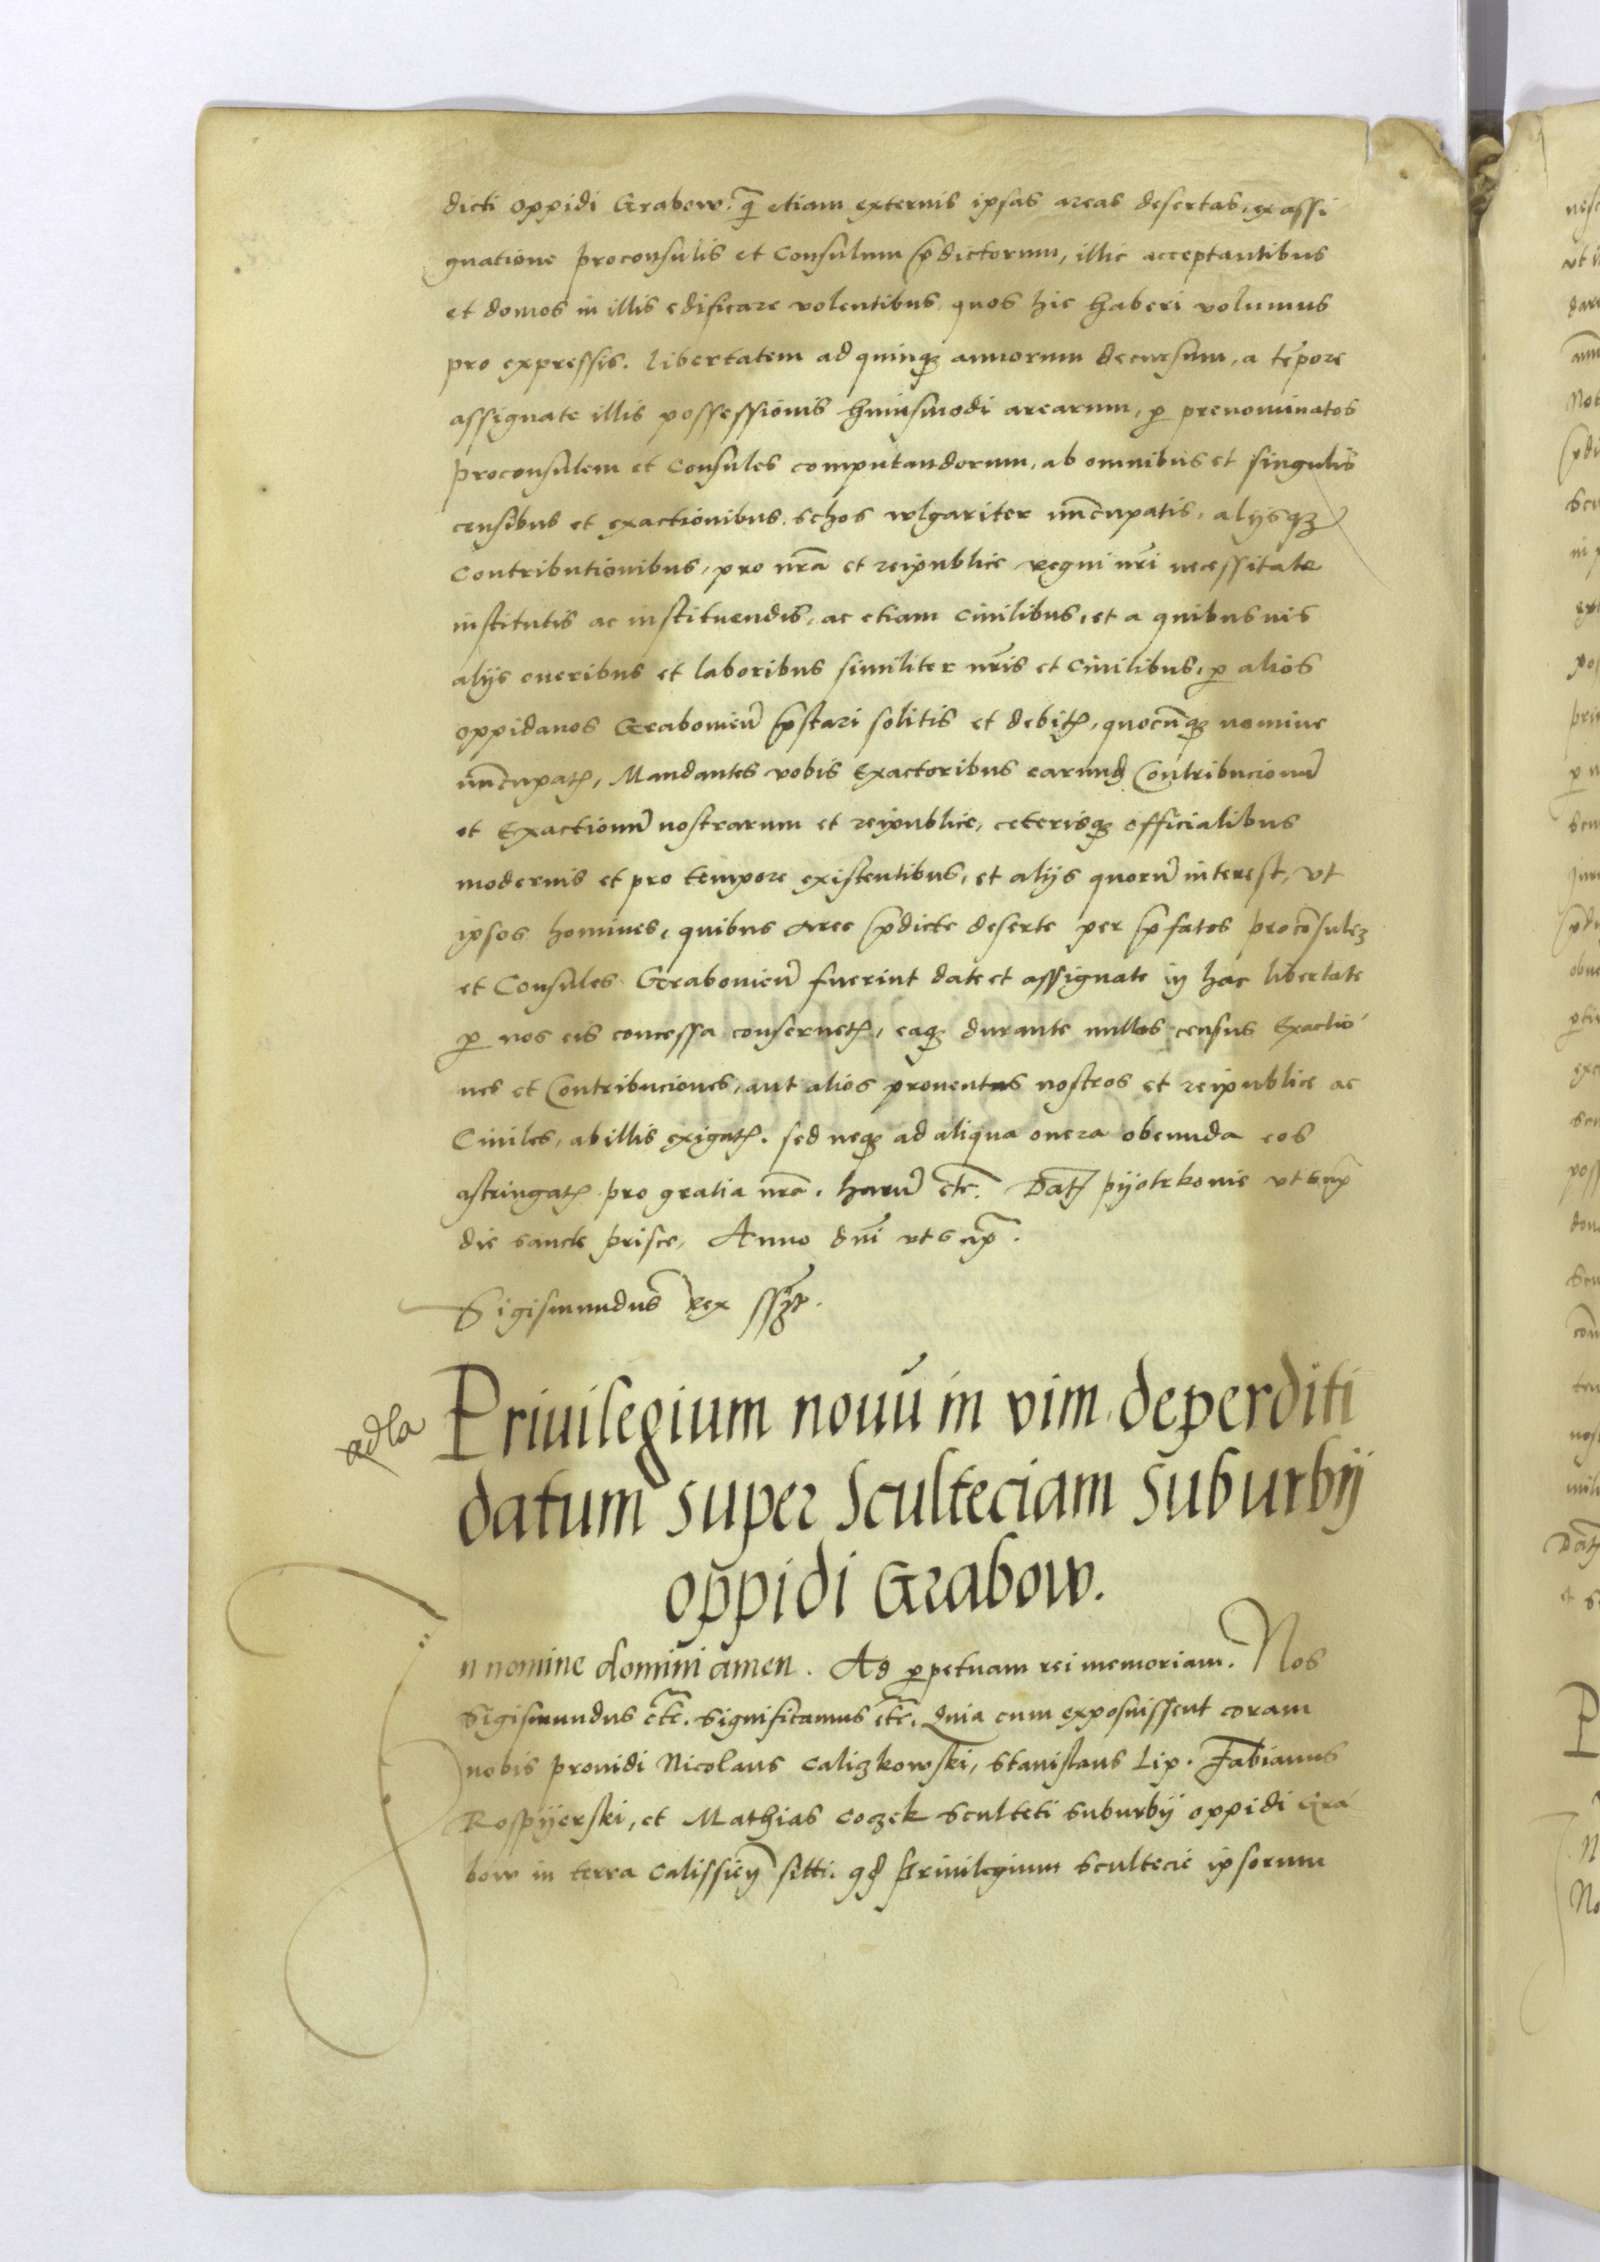 dicti oppidi Grabow. q̃ etiam externis ipsas areas desertas, ex assi
gnatione proconsulis et Consulum p̃dictorum, illic acceptantibus
et domos in illis edificare volentibus quos hic haberi volumus
pro expressis. Libertatem ad quinqȝ annorum decursum, a tẽpore
assignate illis possessionis huiusmodi arearum, ꝑ prenominatos
proconsulem et Consules computandorum, ab omnibus et singulis
censibus et exactionibus, schos vlgariter nũcupatis, alijsqȝ
Contributionibus, pro nr̃a et reipublice regni nr̃i necessitate
institutis ac instituendis, ac etiam Ciuilibus, et a quibusuis
alijs oneribus et laboribus similiter nr̃is et Ciuilibus, ꝑ alios
oppidanos Grabouieñ p̃stari solitis et debitꝭ, quocũqȝ nomine
nũcupatꝭ, Mandantes vobis Exactoribus earunđ Contribucionũ
et Exactionũ nostrarum et reipublice, ceterisqȝ officialibus
modernis et pro tempore existentibus, et alijs quorũ interest, vt
ipsos homines, quibus aree p̃dicte deserte per p̃fatos procõsuleȝ
et Consules Grabouieñ fuerint date et assignate in hac libertate
ꝑ nos eis concessa conseruetꝭ, eaqȝ durante nullos census Exactio
nes et Contribuciones, aut alios prouentus nostros et reipublice ac
Ciuiles, ab illis exigatꝭ. sed neqȝ ad aliqua onera obeunda eos
astringatꝭ pro gratia nr̃a. harũ etc̃. Dat̃ȝ pijotrkouie vt sup̃
die sancte prisce, Anno dñi vt sup̃.
Sigismundus Rex ss̃t.
adla
Priuilegium nouũ in vim deperditi
datum super Sculteciam Suburbij
oppidi Grabow.
In nomine domini amen. Ad ꝑpetuam rei memoriam. Nos
Sigismundus etc̃. significamus etc̃. Quia cum exposuissent coram
nobis prouidi Nicolaus Caliȝkowski, Stanislaus Lip. Fabianus
Rospijerski, et Mathias Coȝek Sculteti suburbij oppidi Gra
bow in terra Calissieñ sitti. qđ Priuilegium Scultecie ipsorum